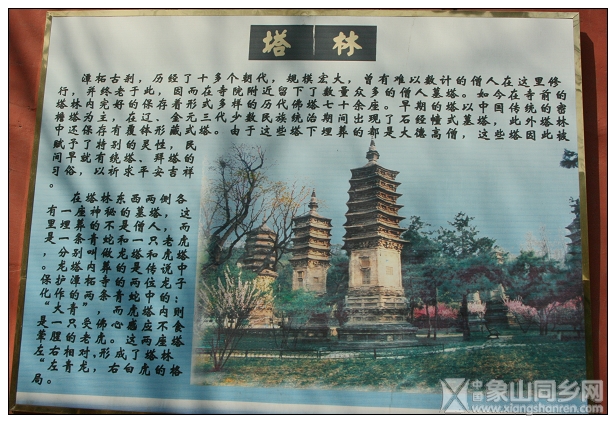 塔林
潭柘古刹，历经了十多个朝代，规模宏大，曾有难以数计的僧人在这里修
行，并终老于此，因而在寺院附近留下了数量众多的僧人墓塔。如今在寺前的
塔林内完好的保存着形式多样的历代佛塔七十余座。早期的塔以中国传统的密
檐塔为主，在辽、金元三代少数民族统治期间出现了石经幢式墓塔，此外塔林
中还保存有覆钵形藏式塔。由于这些塔下埋葬的都是大德高僧，这些塔因此被
赋予了特别的灵性，民
间早就有绕塔、拜塔的
习俗，以祈求平安吉祥
。
在塔林东西两侧各
有一座神秘的墓塔，这
里埋葬的不是僧人，而
是一条青蛇和一只老虎
，分别叫做龙塔和虎塔
。龙塔内葬的是传说中
保护潭柘寺的两位龙子
化作的两条青蛇中的：
“大青”，而虎塔内则
是一只受佛心感应不食
荤腥的老虎。这两座塔
左右相对、形成了塔林
“左青龙，右白虎的格
局。
中国象山同乡网
www.xiangshanren.com